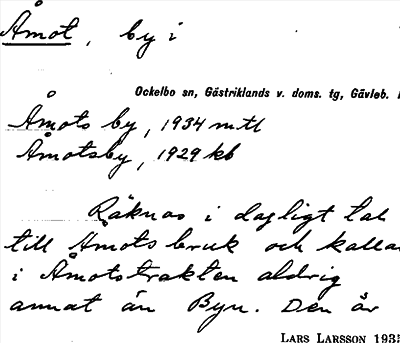 Åmot, by i
Ockelbo sn, Gästriklands v. doms. tg, Gävleb.
Åmots by, 1934 mtl
Åmotsby, 1929 kb
Räknas i dagligt tal
till Åmots bruk och kallas
i Åmotstrakten aldrig
annat än Byn. Den är
LARS LARSSON 1935